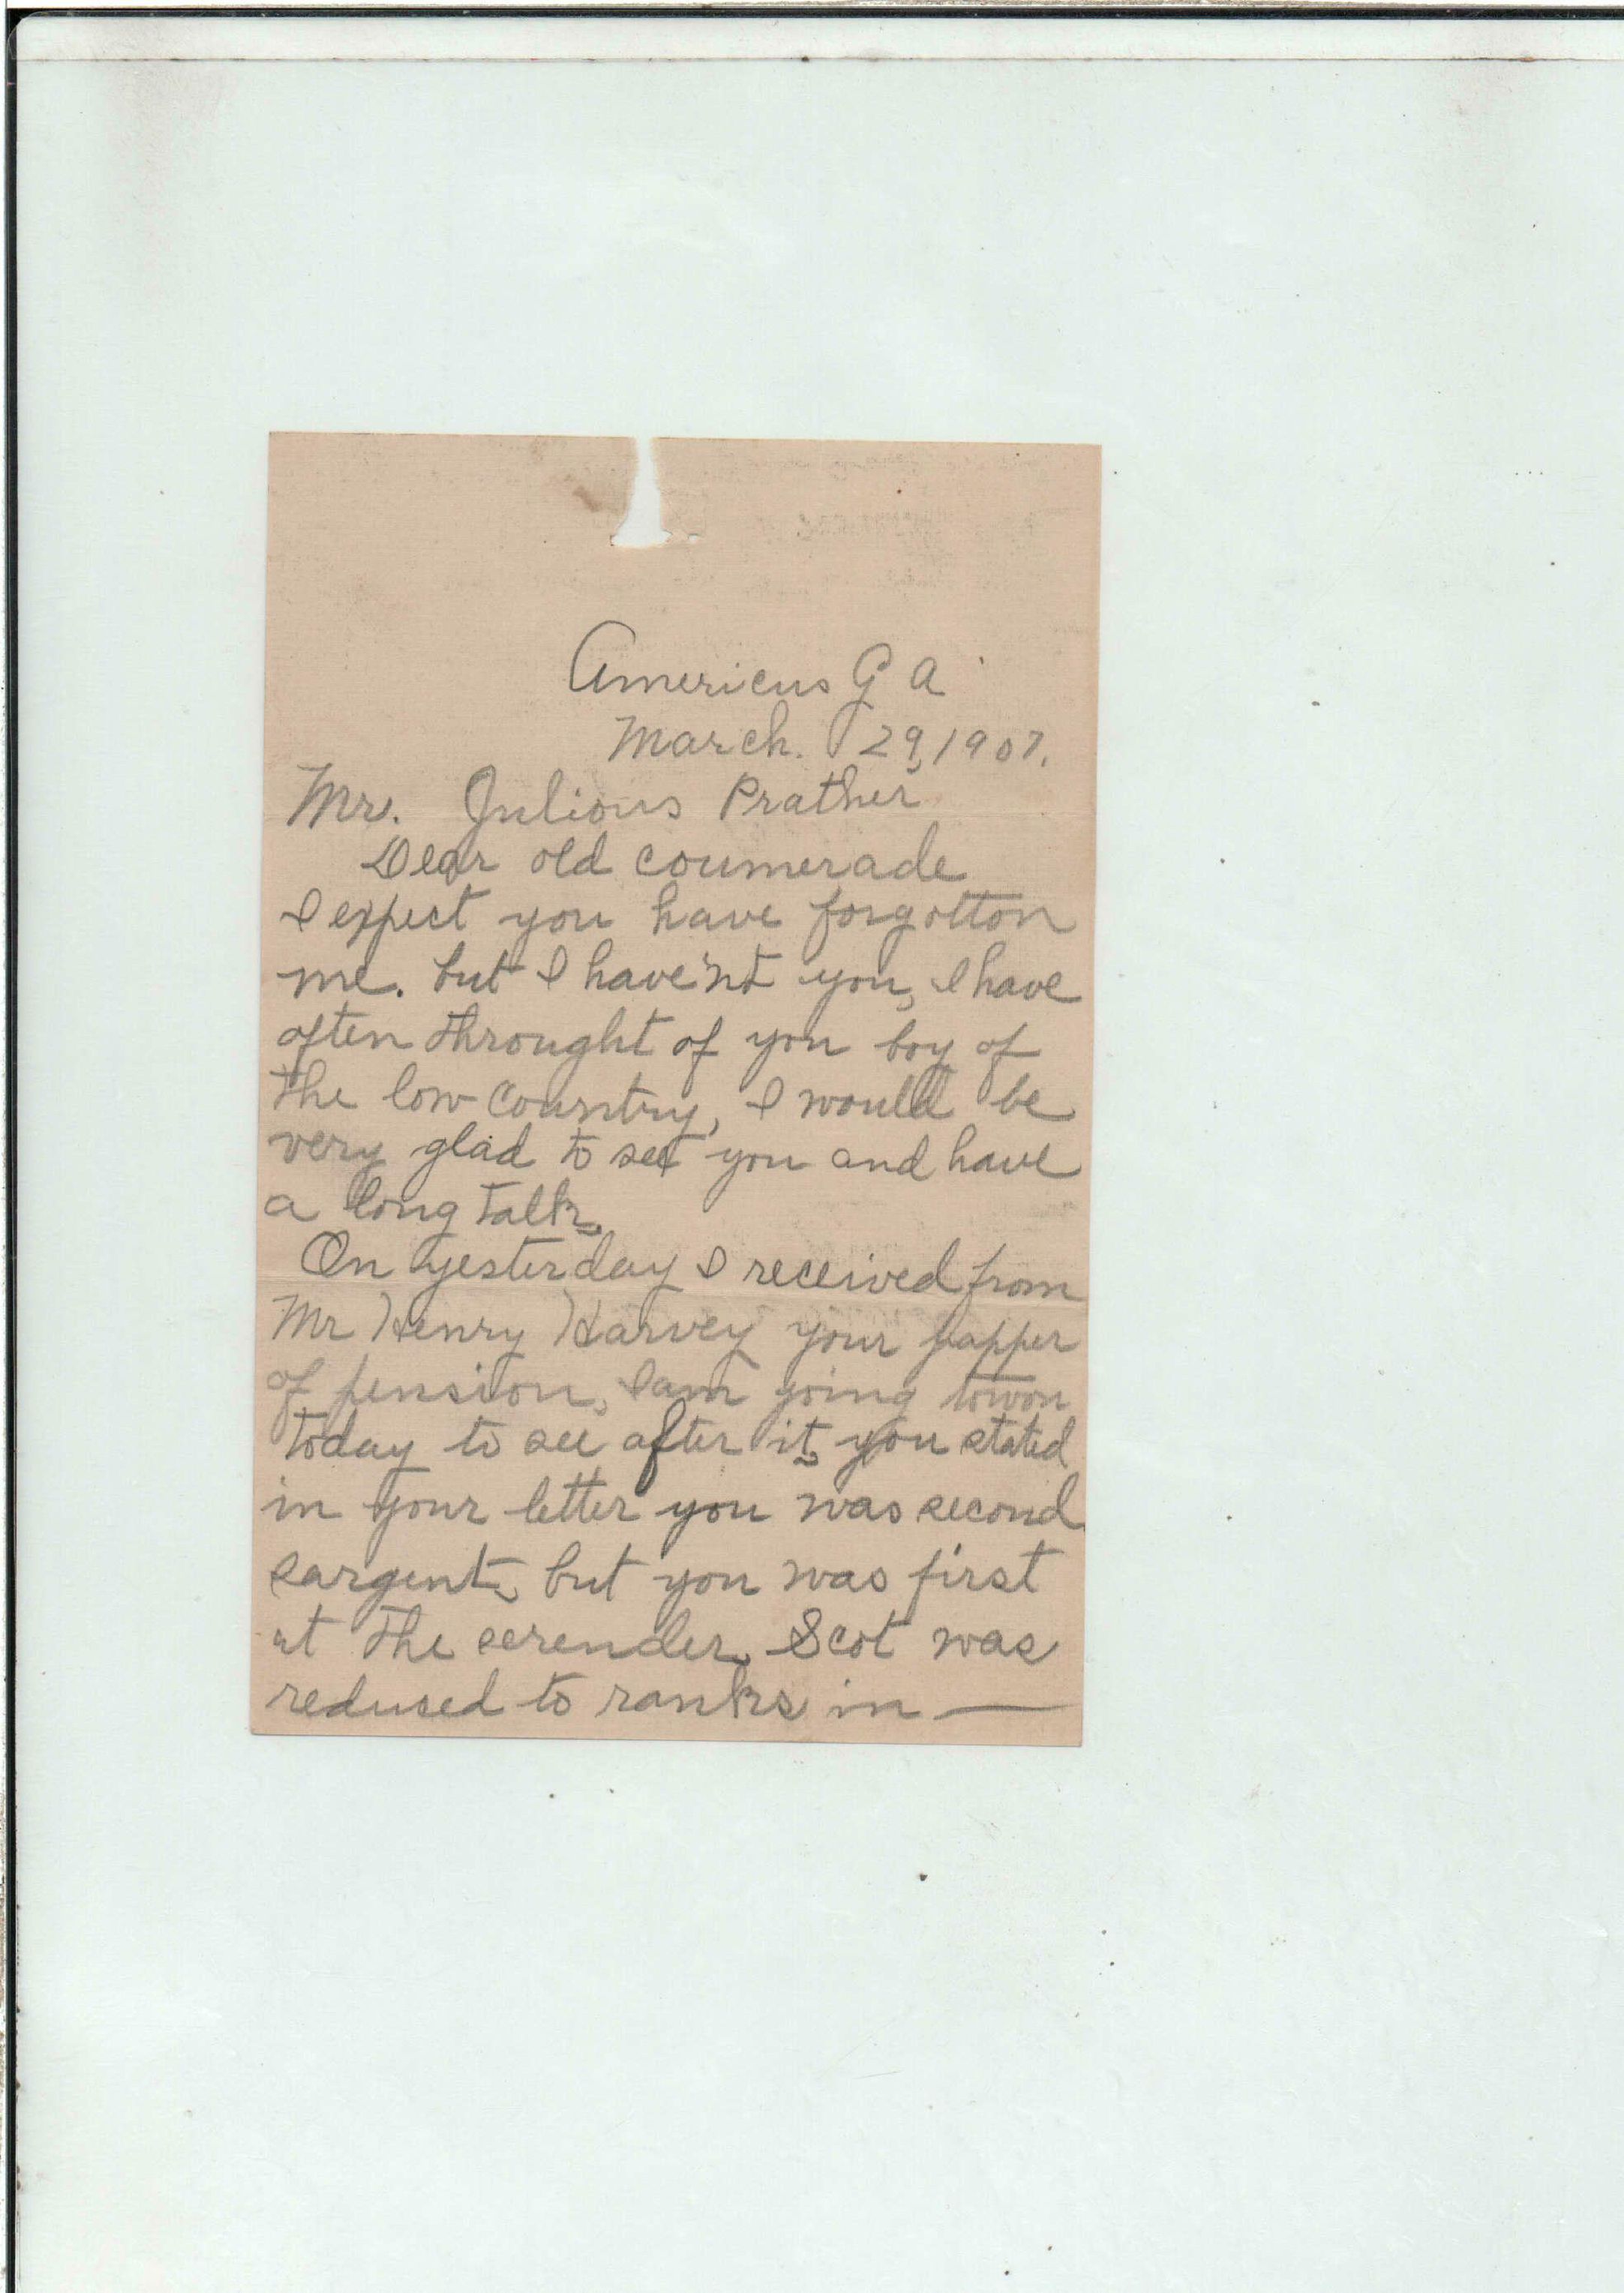 Americus G a
March. 29, 1907.
Mr. Julious Prather
Dear old coumerade
I expect you have forgotton
me. but I have'nt you, I have
often throught of you boy of
the low country, I would be
very glad to see you and have
a long talk.
On yesterday I received from
Mr Henry Harvey your papper
of pension, I am going towon
today to see after it, you stated
in your letter you was second
sargent, but you was first
at the serender, Scot was
redused to ranks in —